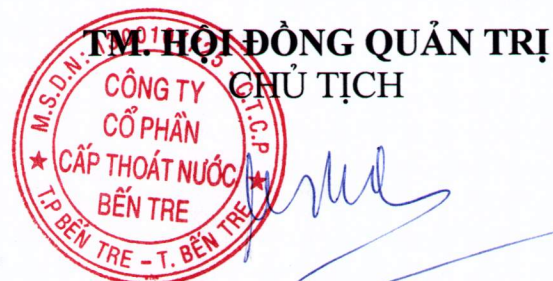 TM. HỘI ĐỒNG QUẢN TRỊ
CHỦ TỊCH
CÔNG TY
CỔ PHẦN
CẤP THOÁT NƯỚC
BẾN TRE
T.P BẾN TRE - T. BẾN TRE